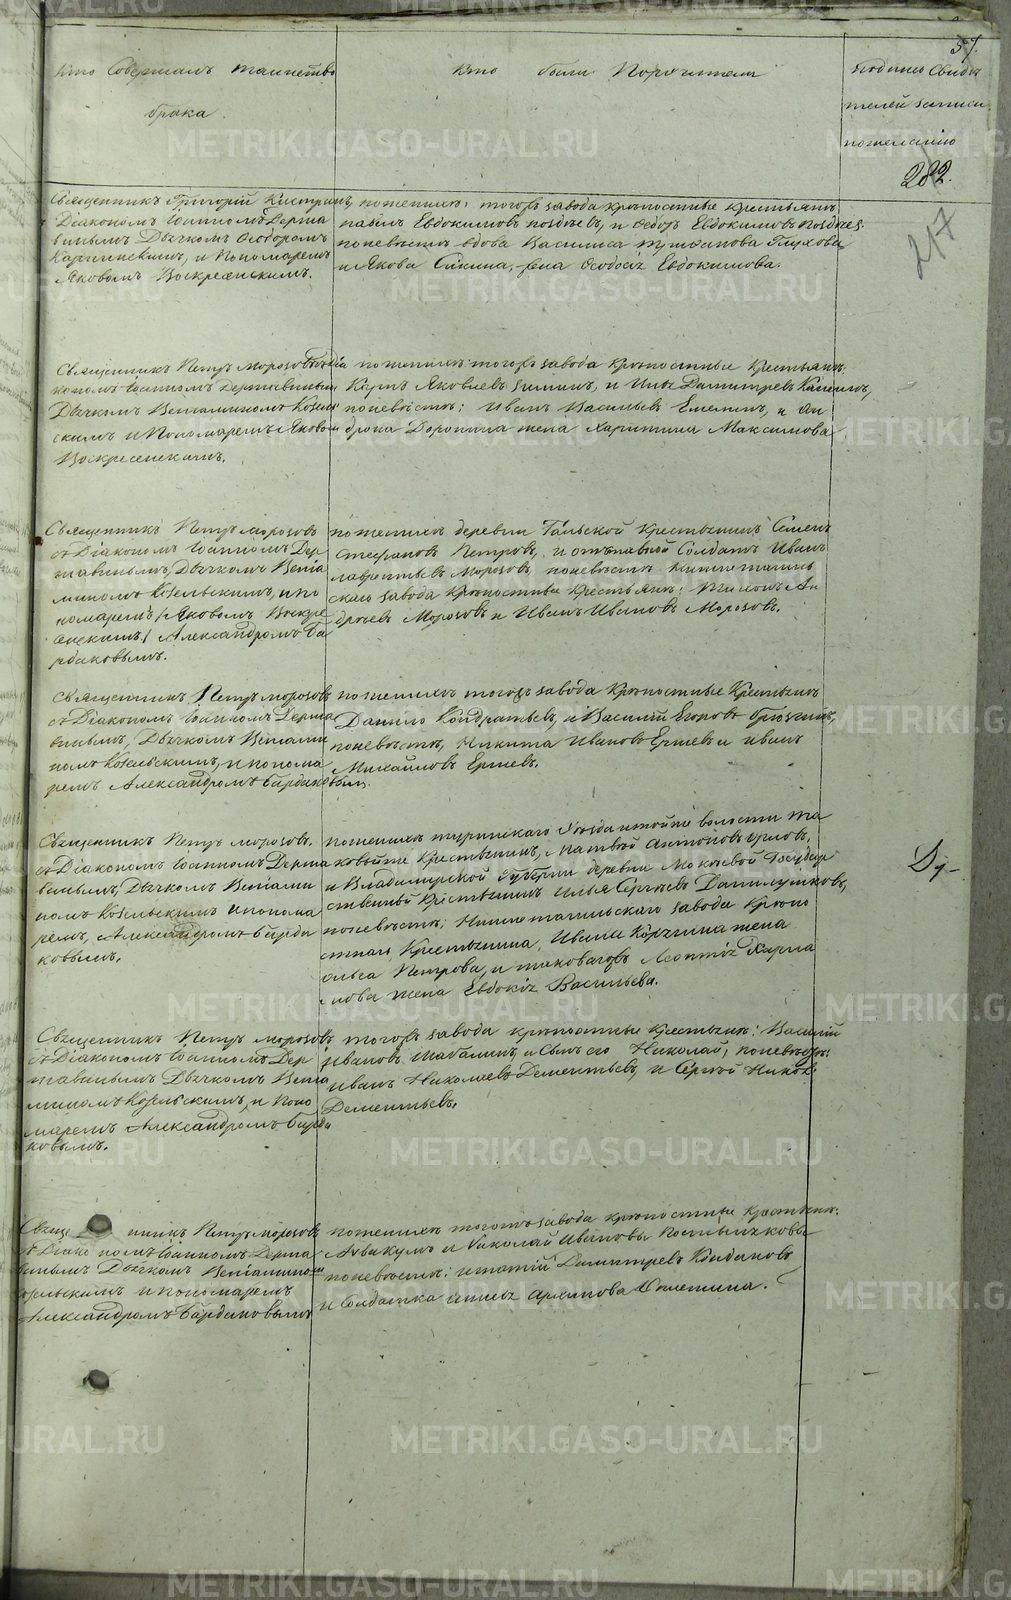 57.
Кто Совершалъ таинство
брака.
Кто были Поручители
подпись Свиде
телей записи
по желанію
282.
217
Священникъ Григорій
Діакономъ Іоанномъ Держа
винымъ Дьячкомъ Ѳеодоромъ
и Пономаремъ
Яковомъ Воскресенскимъ.
по женихѣ: тогожъ завода крѣпостные крестьяне
Павелъ Евдокимовъ Поздѣевъ, и Ѳедоръ Евдокимовъ Поздѣевъ.
по невѣстѣ вдова Василиса Глухова
и Якова жена Ѳеодосія Евдокимова.
Священникъ Петръ Морозовъ съ Діа
кономъ Іоанномъ Державинымъ
Дьячкомъ Веніаминомъ Козель
скимъ и Пономаремъ Яковом
Воскресенскимъ.
по женихѣ: тогожъ завода Крѣпостные Крестьяне,
Карпъ Яковлевъ Зиминъ, и Илья Димитріевъ
по невѣстѣ: Иванъ Васильевъ Емелинъ, и Ан
дрона Доронина жена Харитина Максимова
Священникъ Петръ Морозовъ
съ Діакономъ Іоанномъ Дер
жавинымъ, Дьячкомъ Веніа
миномъ Козельскимъ, и по
номаремъ /Яковомъ Воскре
сенскимъ/ Александромъ Ба
рдаковымъ.
по женихѣ деревни Гальской крестьянинъ Семенъ
Стефановъ Петровъ, и отставной Солдатъ Иванъ
Лаврентьевъ Морозовъ, по невѣстѣ Нижнетагиль
скаго завода Крѣпостные Крестьяне: Тихонъ Ан
дреевъ Морозовъ и Иванъ Ивановъ Морозовъ.
Священникъ Петръ Морозовъ
съ Діакономъ Іоанномъ Держа
винымъ, Дьячкомъ Веніами
номъ Козельскимъ, и понома
ремъ Александромъ Бардако
вым.
по женихѣ тогожъ завода Крѣпостные Крестьяне
Данило Кондратьевъ, и Василій Егоровъ
по невѣстѣ, Никита Ивановъ Ершевъ и Иванъ
Михайловъ Ершевъ.
Священникъ Петръ Морозовъ.
съ Діакономъ Іоанномъ Держа
винымъ, Дьячкомъ Веніами
номъ Козельскимъ и понома
ремъ, Александромъ Барда
ковымъ.
по женихѣ туринскаго уѣзда волости
Крестьянинъ, Матвѣй Антоновъ Орловъ,
и Владимирской губерніи деревни Государ
ственный Крестьянинъ Илья Сергѣевъ Данилушковъ,
по невѣстѣ; Нижнетагильскаго завода крѣпо
стнаго Крестьянина, Ивана жена
Ольга Петрова, и таковагожъ Леонтія
жена Евдокія Васильева.
Ду-
Священникъ Петръ Морозовъ
съ Діакономъ Іоанномъ Дер
жавинымъ Дьячкомъ Веніа
миномъ Козельскимъ, и Поно
маремъ Александромъ Барда
ковымъ.
тогожъ завода крѣпостные крестьяне: Василій
Ивановъ Шабалинъ, и сынъ его Николай, по невѣстѣ:
Иванъ Николаевъ Дементьевъ, и Сергѣй
Дементьевъ.
Священникъ Петръ Морозовъ
съ Діакономъ Іоанномъ Держа
винымъ Дьячкомъ Веніамином
Козельскимъ и пономаремъ
Александромъ Бардаковымъ
по женихѣ тогожъ завода крѣпостные крестьяне:
Авакумъ и Николай Ивановы
по невѣстѣ: Димитріевъ
и Солдатка Архипова